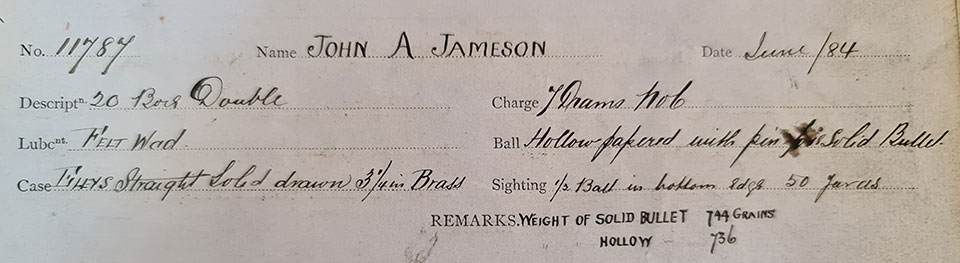 No. 11787 Name JOHN A JAMESON Date June /84
Descriptn. 20 Bore Double Charge 7 Drams No6
Lubcnt. FELT Wad. Ball Hollow papered with pin Solid Bullet.
Case ELEYS Straight Solid drawn 3¼ in Brass Sighting ½ Ball in bottom edge 50 Yards
REMARKS. WEIGHT OF SOLID BULLET 744 GRAINS
HOLLOW - 736